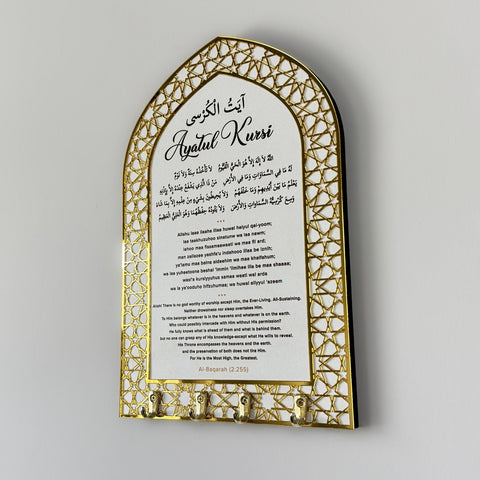 آيَتُ الْكُرْسِى
Ayatul Kursi
اَللّٰهُ لَا اِلٰهَ اِلَّا هُوَ الْحَيُّ الْقَيُّومُ لَا تَأْخُذُهُ سِنَةٌ وَلَا نَوْمٌ
لَهُ مَا فِي السَّمَاوَاتِ وَمَا فِي الْاَرْضِ مَنْ ذَا الَّذِي يَشْفَعُ عِنْدَهُ اِلَّا بِاِذْنِهِ
يَعْلَمُ مَا بَيْنَ اَيْدِيهِمْ وَمَا خَلْفَهُمْ وَلَا يُحِيطُونَ بِشَيْءٍ مِنْ عِلْمِهِ اِلَّا بِمَا شَاءَ
وَسِعَ كُرْسِيُّهُ السَّمَاوَاتِ وَالْاَرْضَ وَلَا يَئُودُهُ حِفْظُهُمَا وَهُوَ الْعَلِيُّ الْعَظِيمُ
Allahu laaa ilaaha illaa huwal haiyul qai-yoom;
laa taakhuzuhoo sinatunw wa laa nawm;
lahoo maa fissamaawaati wa maa fil ard;
man zallazee yashfa'u indahooo illaa be iznih;
ya'lamu maa baina aideehim wa maa khalfahum;
wa laa yuheetoona beshai 'immin 'ilmihee illa be maa shaaa;
wasi'a kursiyyuhus samaa waati wal arda
wa la ya'ooduho hifzuhumaa; wa huwal aliyyul 'azeem
Allah! There is no god worthy of worship except Him, the Ever-Living, All-Sustaining.
Neither drowsiness nor sleep overtakes Him.
To Him belongs whatever is in the heavens and whatever is on the earth.
Who could possibly intercede with Him without His permission?
He fully knows what is ahead of them and what is behind them,
but no one can grasp any of His knowledge-except what He wills to reveal.
His Throne encompasses the heavens and the earth,
and the preservation of both does not tire Him.
For He is the Most High, the Greatest.
Al-Baqarah (2:255)